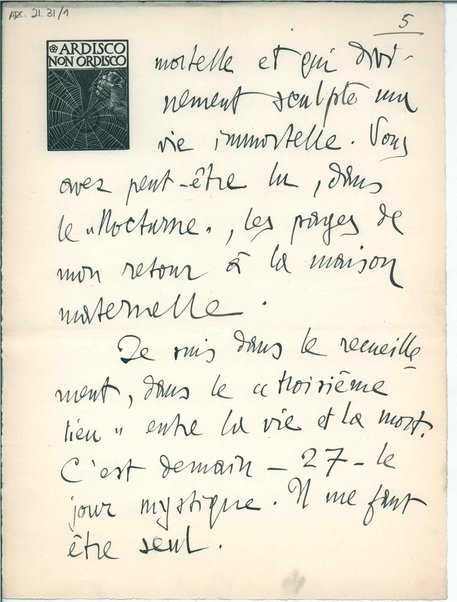 ARC. 21. 31/1
5
ARDISCO
NON ORDISCO
mortelle et qui divi-
nement sculpte ma
vie immortelle. Vous
avez peut-être lu, dans
le "Nocturne", les pages de
mon retour à la maison
maternelle.
Je suis dans le recueille
ment, dans le "troisième
lieu" entre la vie et la mort.
C'est demain - 27 - le
jour mystique. Il me faut
être seul.